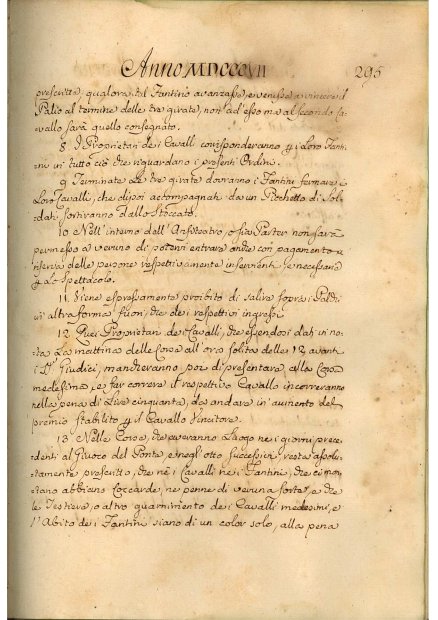 Anno MDCCCVII 295
prescritta: qualora tal Fantino avanzasse, e venisse a vincere il
Palio al termine delle tre girate, non ad esso ma al secondo Ca=
vallo sarà quello consegnato.
8 I Proprietari de i Cavalli corrisponderanno p i Loro Fant=
ini in tutto ciò che riguardano i presenti Ordini.
9 Terminate le tre girate dovranno i Fantini fermare i
Loro Cavalli, che dipoi accompagnati da un Picchetto di Sol=
dati sortiranno dallo Stoccato.
10 Nell'interno dell'Anfiteatro, o sia Parter non sarà
permesso a veruno di potervi entrare anche con pagamento a
riserva delle persone respettivamente inservienti, e necessarie
p lo Spettacolo.
11. Viene espressamente proibito di salire sopra i Palchi
in altra forma fuori, che dei respettivi ingressi.
12. Quei Proprietari dei Cavalli, che essendosi dati in no=
ta La mattina delle Corse all'ora solita delle 12 avanti
i Giudici, mancheranno poi di presentare alla Corsa
medesima, e far correre il respettivo Cavallo incorreranno
nella pena di Lire cinquanta, da andare in aumento del
premio stabilito p il Cavallo Vincitore.
13 Nelle Corse, che averanno Luogo nei giorni prece=
denti al Giuoco del Ponte, e negli otto successivi resta assolu=
tamente proscritto, che né i Cavalli né i Fantini, che ci mon=
tano abbiano Coccarde, né penne di veruna sorta, e che
le Testiere, o altro guarnimento dei Cavalli medesimi, e
l'Abito dei Fantini siano di un color solo, alla pena